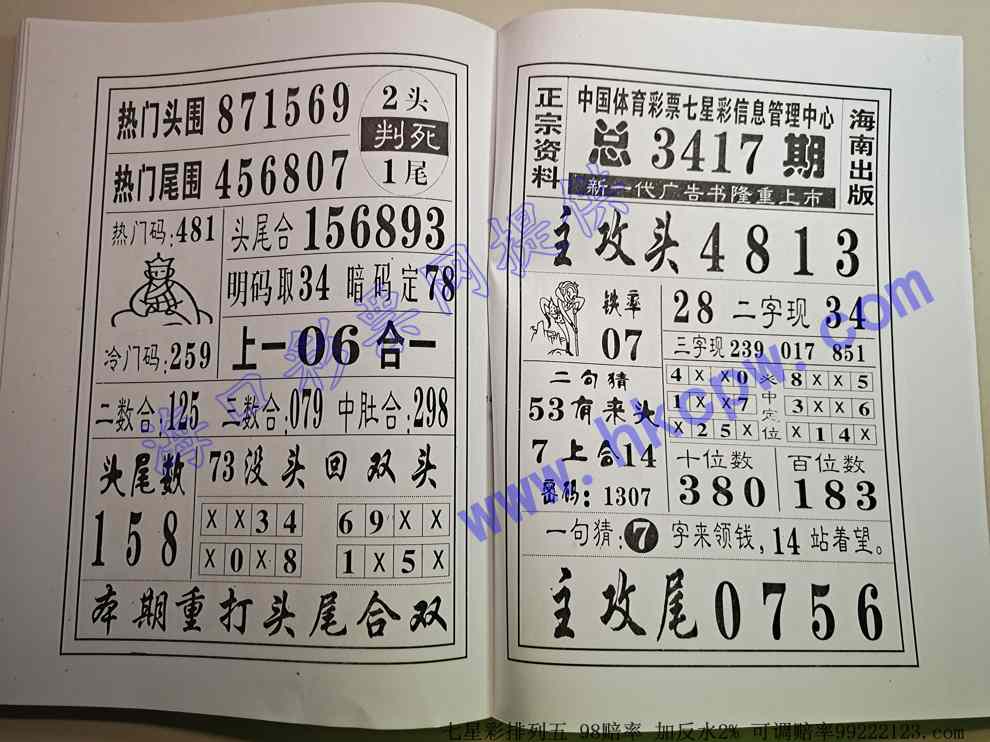 热门头围 871569
2头
判死
1尾
热门尾围 456807
热门码:481
头尾合 156893
明码取34 暗码定78
冷门码:259
上一06合一
二数合:125 三数合:079 中肚合:298
头尾数
158
73没头回双头
X X 3 4
6 9 X X
X 0 X 8
1 X 5 X
本期重打头尾合双
正宗资料
中国体育彩票七星彩信息管理中心
总3417期
新一代广告书隆重上市
海南出版
主攻头4813
铁率
07
28 二字现 34
三字现 239 017 851
二句猜
53有来头
7上合14
密码: 1307
4 X X 0
X 0 X 7
X 2 5 X
头中定位
8 X X 5
3 X X 6
X 1 4 X
十位数
380
百位数
183
一句猜:7字来领钱,14站着望。
主攻尾0756
海口彩票网提供
www.hkcpw.com
七星彩排列五 98赔率 加反水2% 可调赔率99222123.com